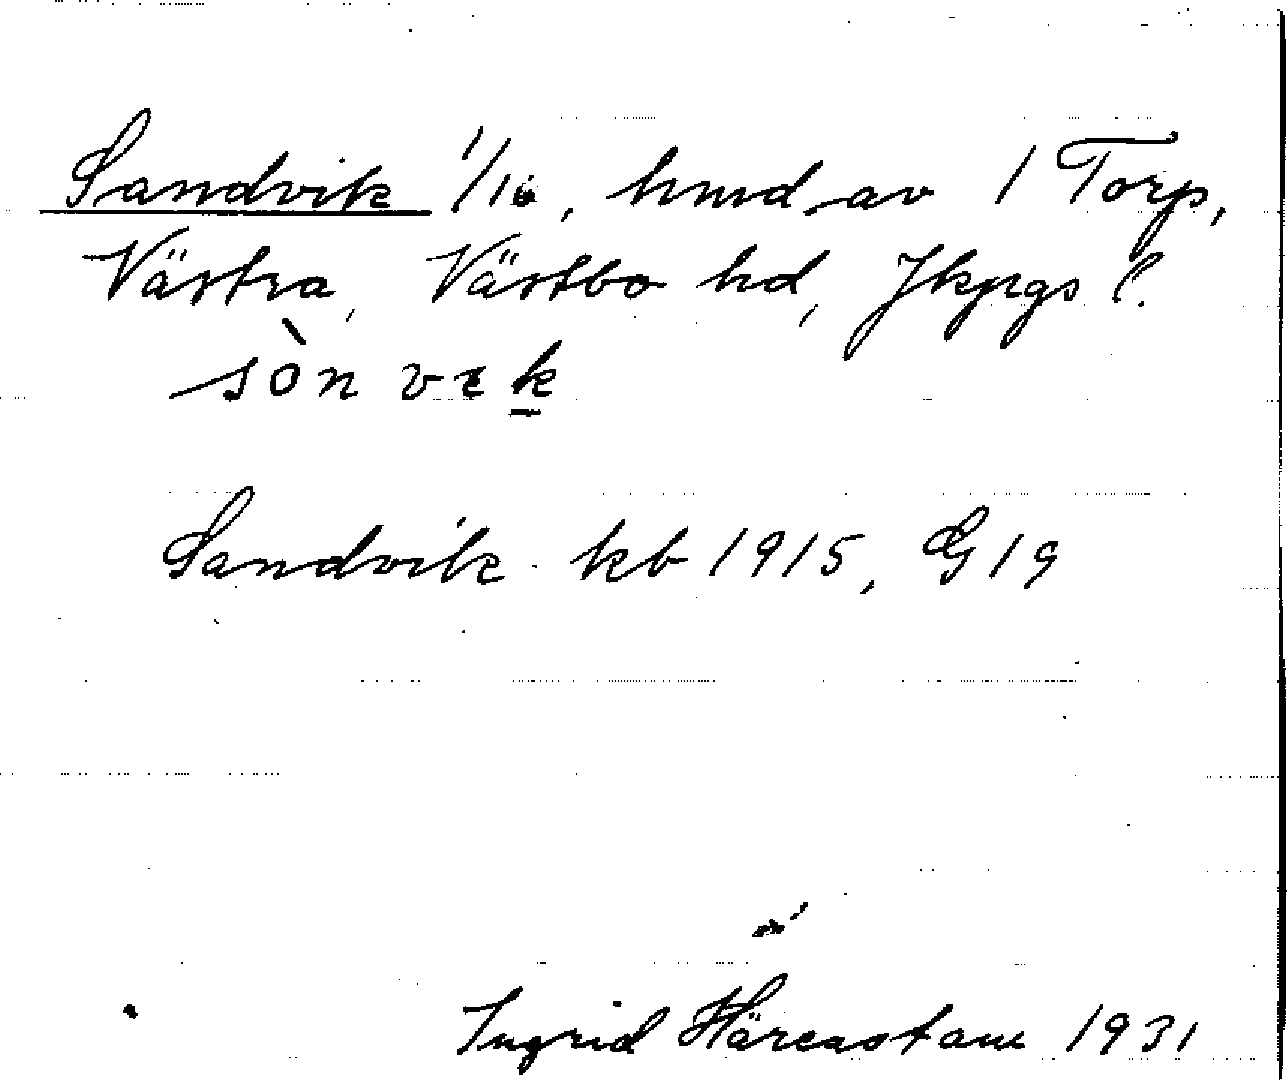 Sandvik 1/16, hmd av 1 Torp,
Västra, Västbo hd, Jkpgs l.
sòn vɛk
Sandvik kb 1915, G19
Ingrid 1931